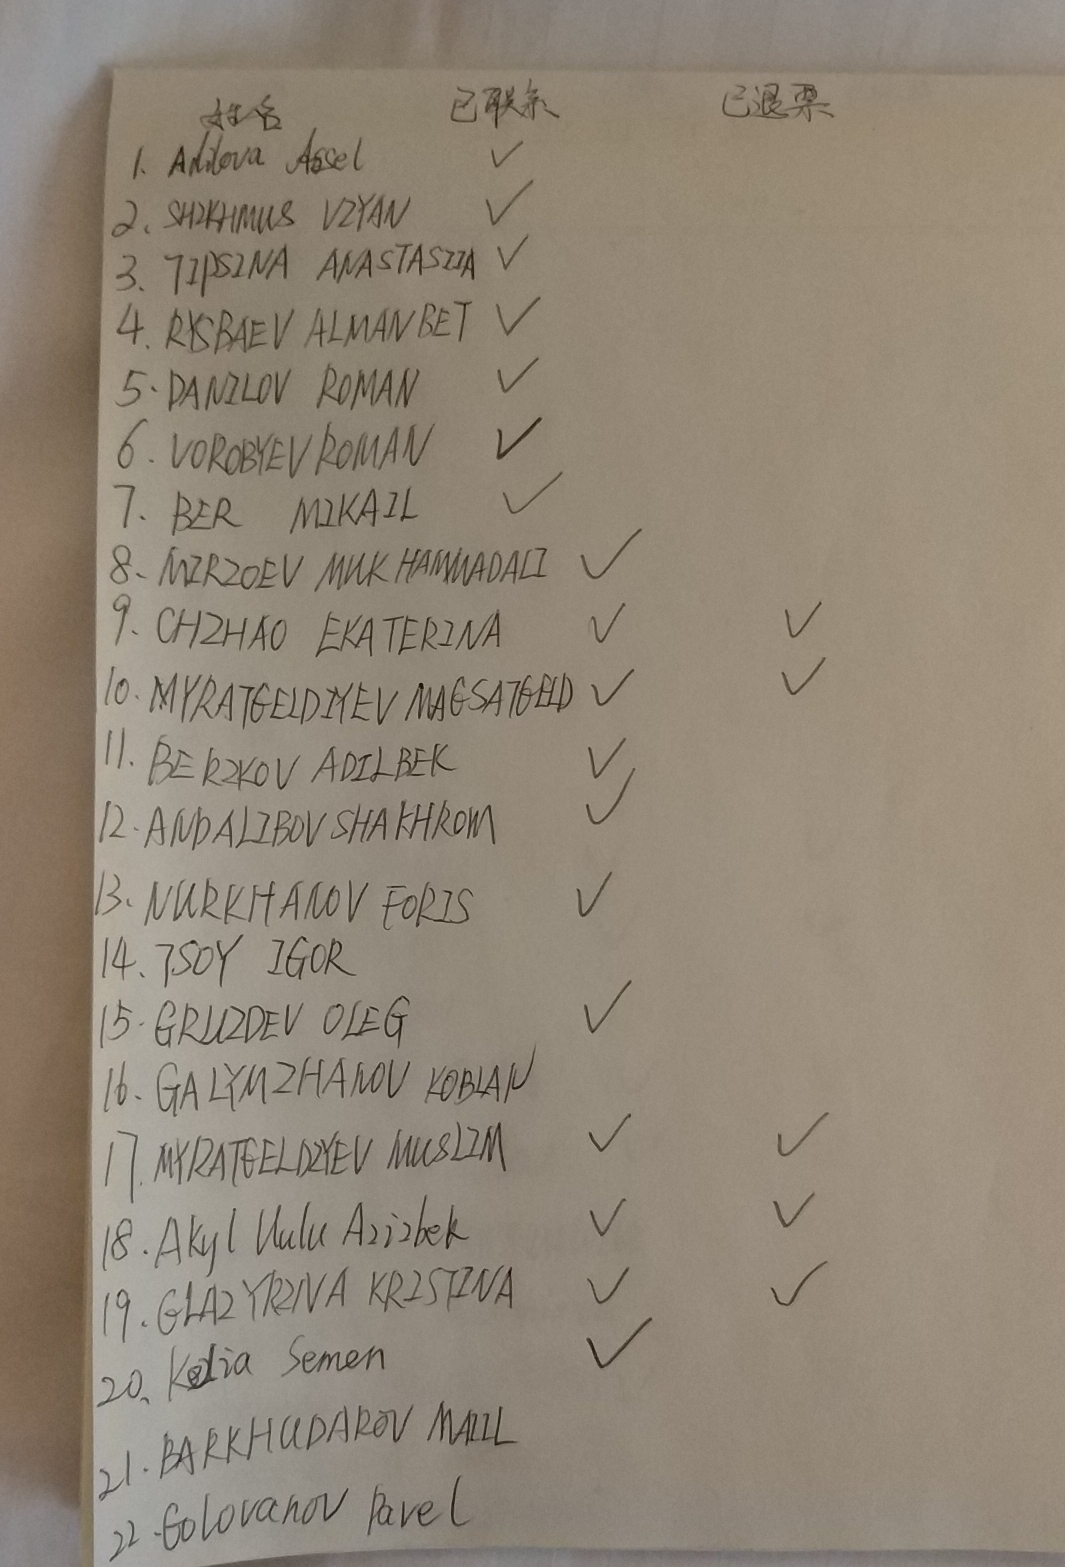 姓名 已联系 已退票
1. Adilova Assel ✓
2. SHIKHMUS VIYAN ✓
3. TIPSINA ANASTASIIA ✓
4. RYSBAEV ALMANBET ✓
5. DANILOV ROMAN ✓
6. VOROBYEV ROMAN ✓
7. BER MIKAIL ✓
8. MIRZOEV MUKHAMMADALI ✓
9. CHZHAO EKATERINA ✓ ✓
10. MYRATGELDIYEV MAGSATGELD ✓ ✓
11. BERIKOV ADILBEK ✓
12. ANDALIBOV SHAKHROM ✓
13. NURKHANOV FORIS ✓
14. TSOY IGOR
15. GRUZDEV OLEG ✓
16. GALYMZHANOV KOBLAN
17. MYRATGELDIYEV MUSLIM ✓ ✓
18. Akyl Uulu Azizbek ✓ ✓
19. GLAZYRINA KRISTINA ✓ ✓
20. Semen ✓
21. BARKHUDAROV
22. Golovanov Pavel